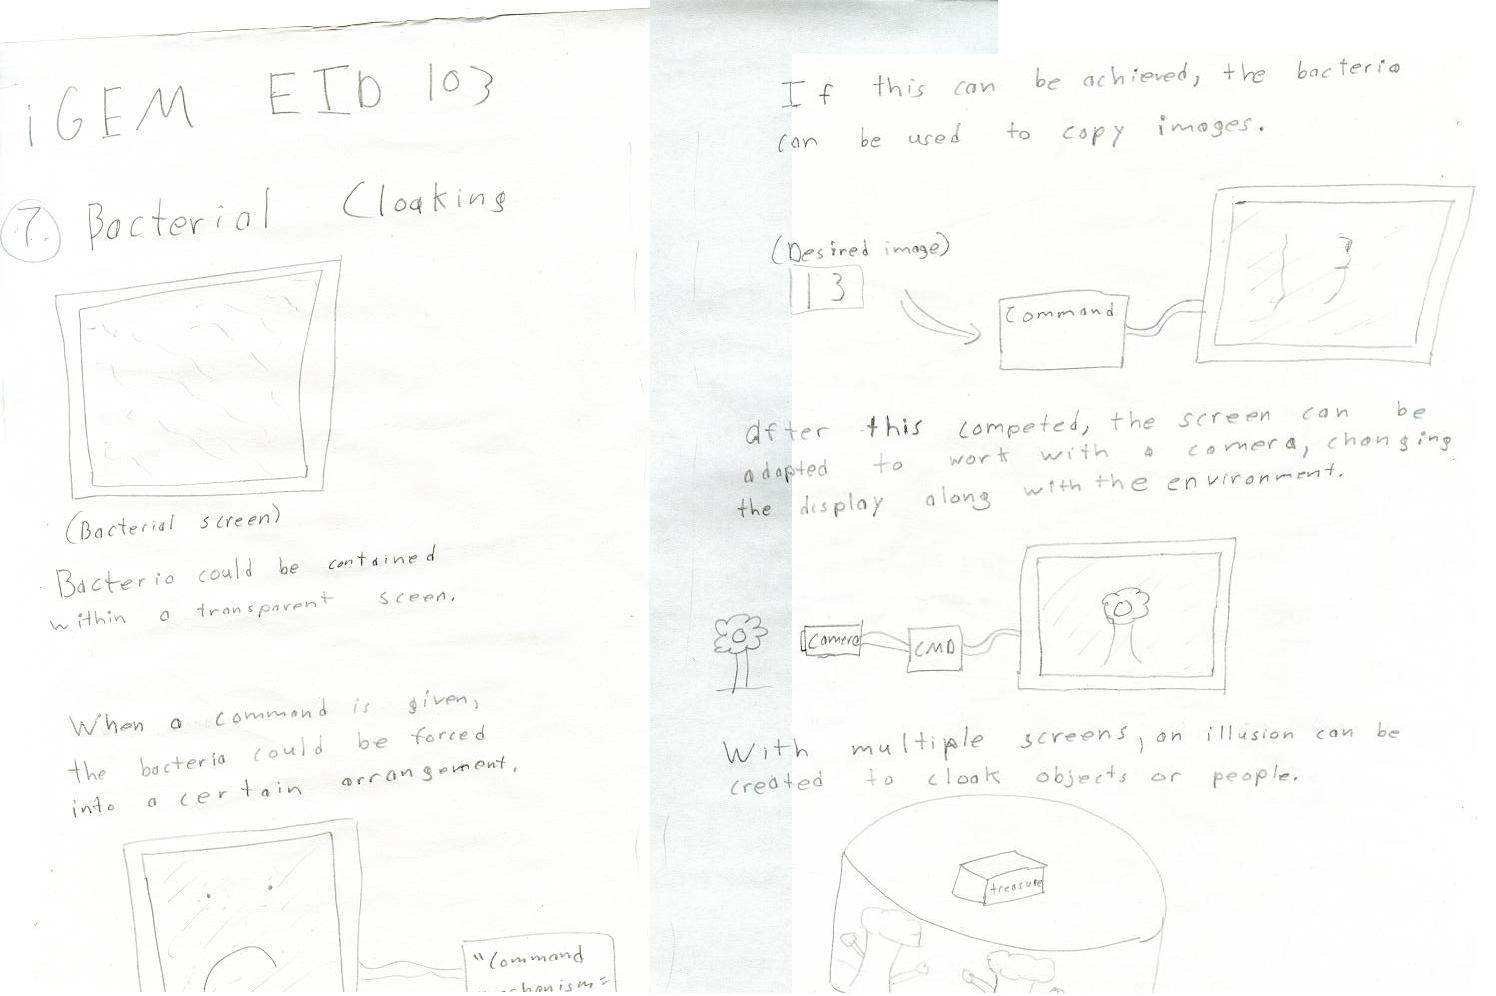 iGEM EID 103
7. Bacterial Cloaking
(Bacterial screen)
Bacteria could be contained
within a transparent sceen.
When a command is given,
the bacteria could be forced
into a certain arrangement.
"Command
If this can be achieved, the bacteria
can be used to copy images.
(Desired image)
13
Command
13
after this competed, the screen can be
adapted to work with a camera, changing
the display along with the environment.
Camera
CMD
With multiple screens, an illusion can be
created to cloak objects or people.
treasure